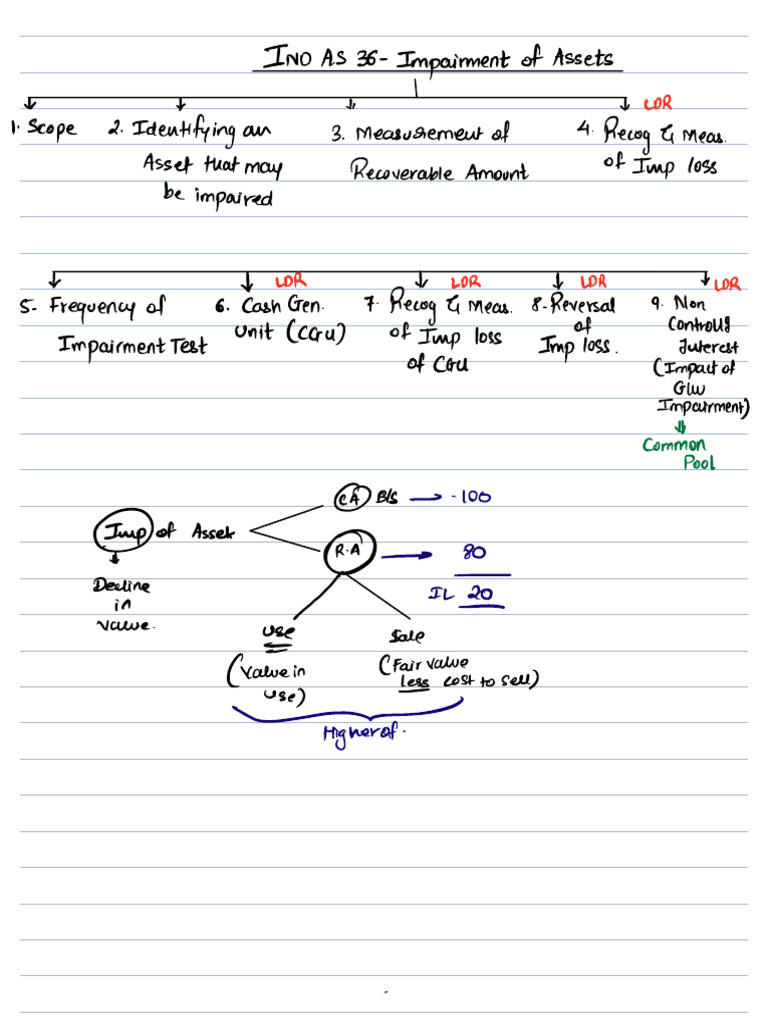 IND AS 36 - Impairment of Assets
LDR
1. Scope
2. Identifying an
Asset that may
be impaired
3. Measurement of
Recoverable Amount
4. Recog & Meas.
of Imp loss
5- Frequency of
Impairment Test
LDR
6. Cash Gen.
Unit (CGU)
LDR
7. Recog & Meas.
of Imp loss
of CGU
LDR
8- Reversal
of
Imp loss.
LDR
9. Non
Interest
(Impact of
GW
Impairment)
Common
Pool
CA B/S -100
Imp of Asset
R.A 80
IL 20
Decline
in
value.
Use
(Value in
use)
Sale
(Fair value
less cost to sell)
Higher of.